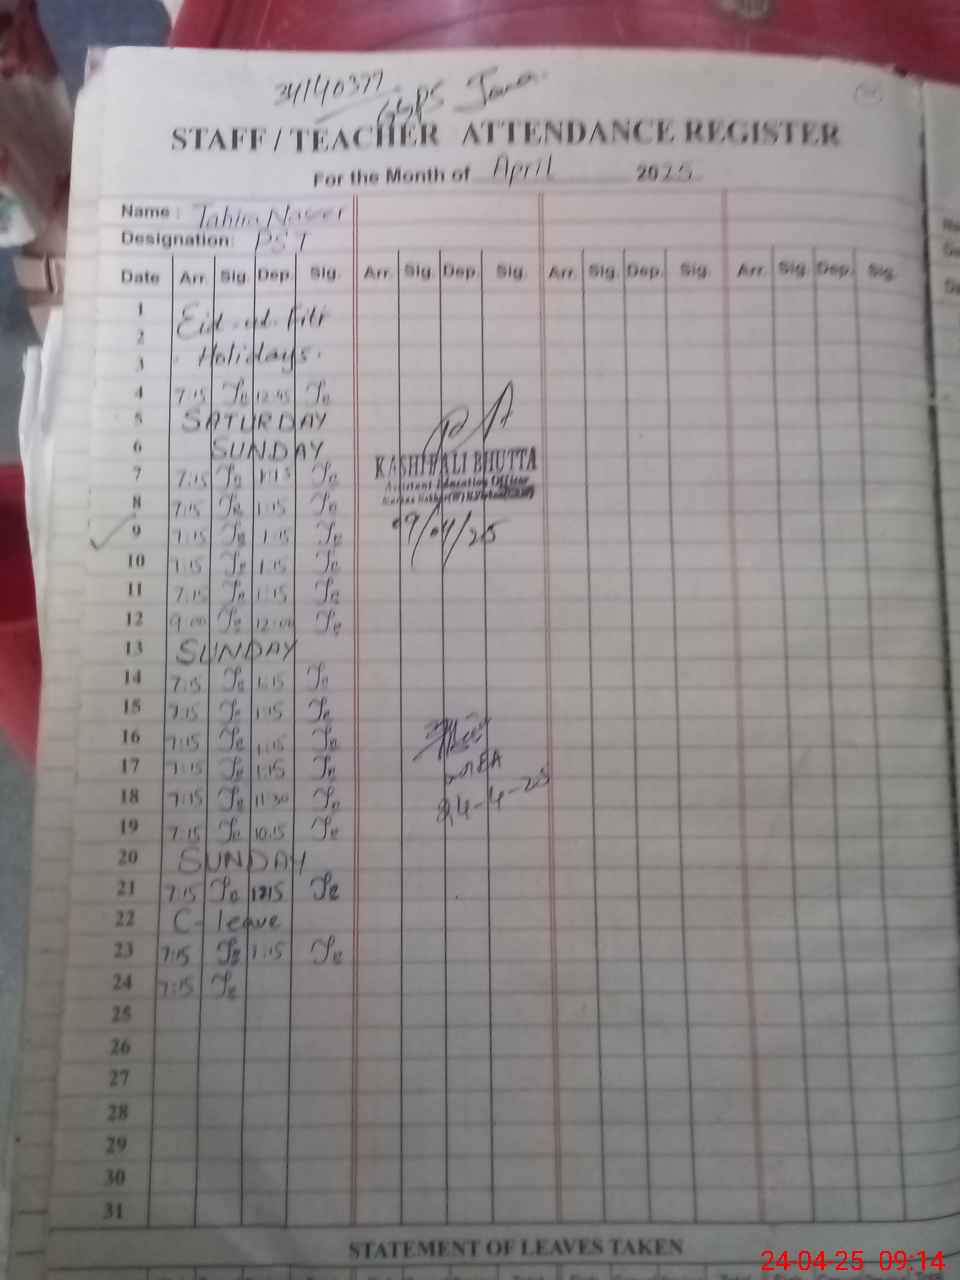 34140377
GGPS
STAFF / TEACHER ATTENDANCE REGISTER
For the Month of April 2025
Name :
Designation: PST
Date Arr. Sig. Dep. Sig. Arr. Sig. Dep. Sig. Arr. Sig. Dep. Sig. Arr. Sig. Dep. Sig.
1 Eid-ul-Fitr
2
3 Holidays.
4 7:15 12:45
5 SATURDAY
6 SUNDAY
KASHIF ALI BHUTTA
7 7:15 1:15
Assistant Education Officer
8 7:15 1:15
9 7:15 1:15 09/04/25
10 7:15 1:15
11 7:15 1:15
12 9:00 12:00
13 SUNDAY
14 7:15 1:15
15 7:15 1:15
16 7:15 1:15
17 7:15 1:15
18 7:15 11:30 24-4-25
19 7:15 10:15
20 SUNDAY
21 7:15 1:15
22 C-leave
23 7:15 1:15
24 7:15
25
26
27
28
29
30
31
STATEMENT OF LEAVES TAKEN
24-04-25 09:14